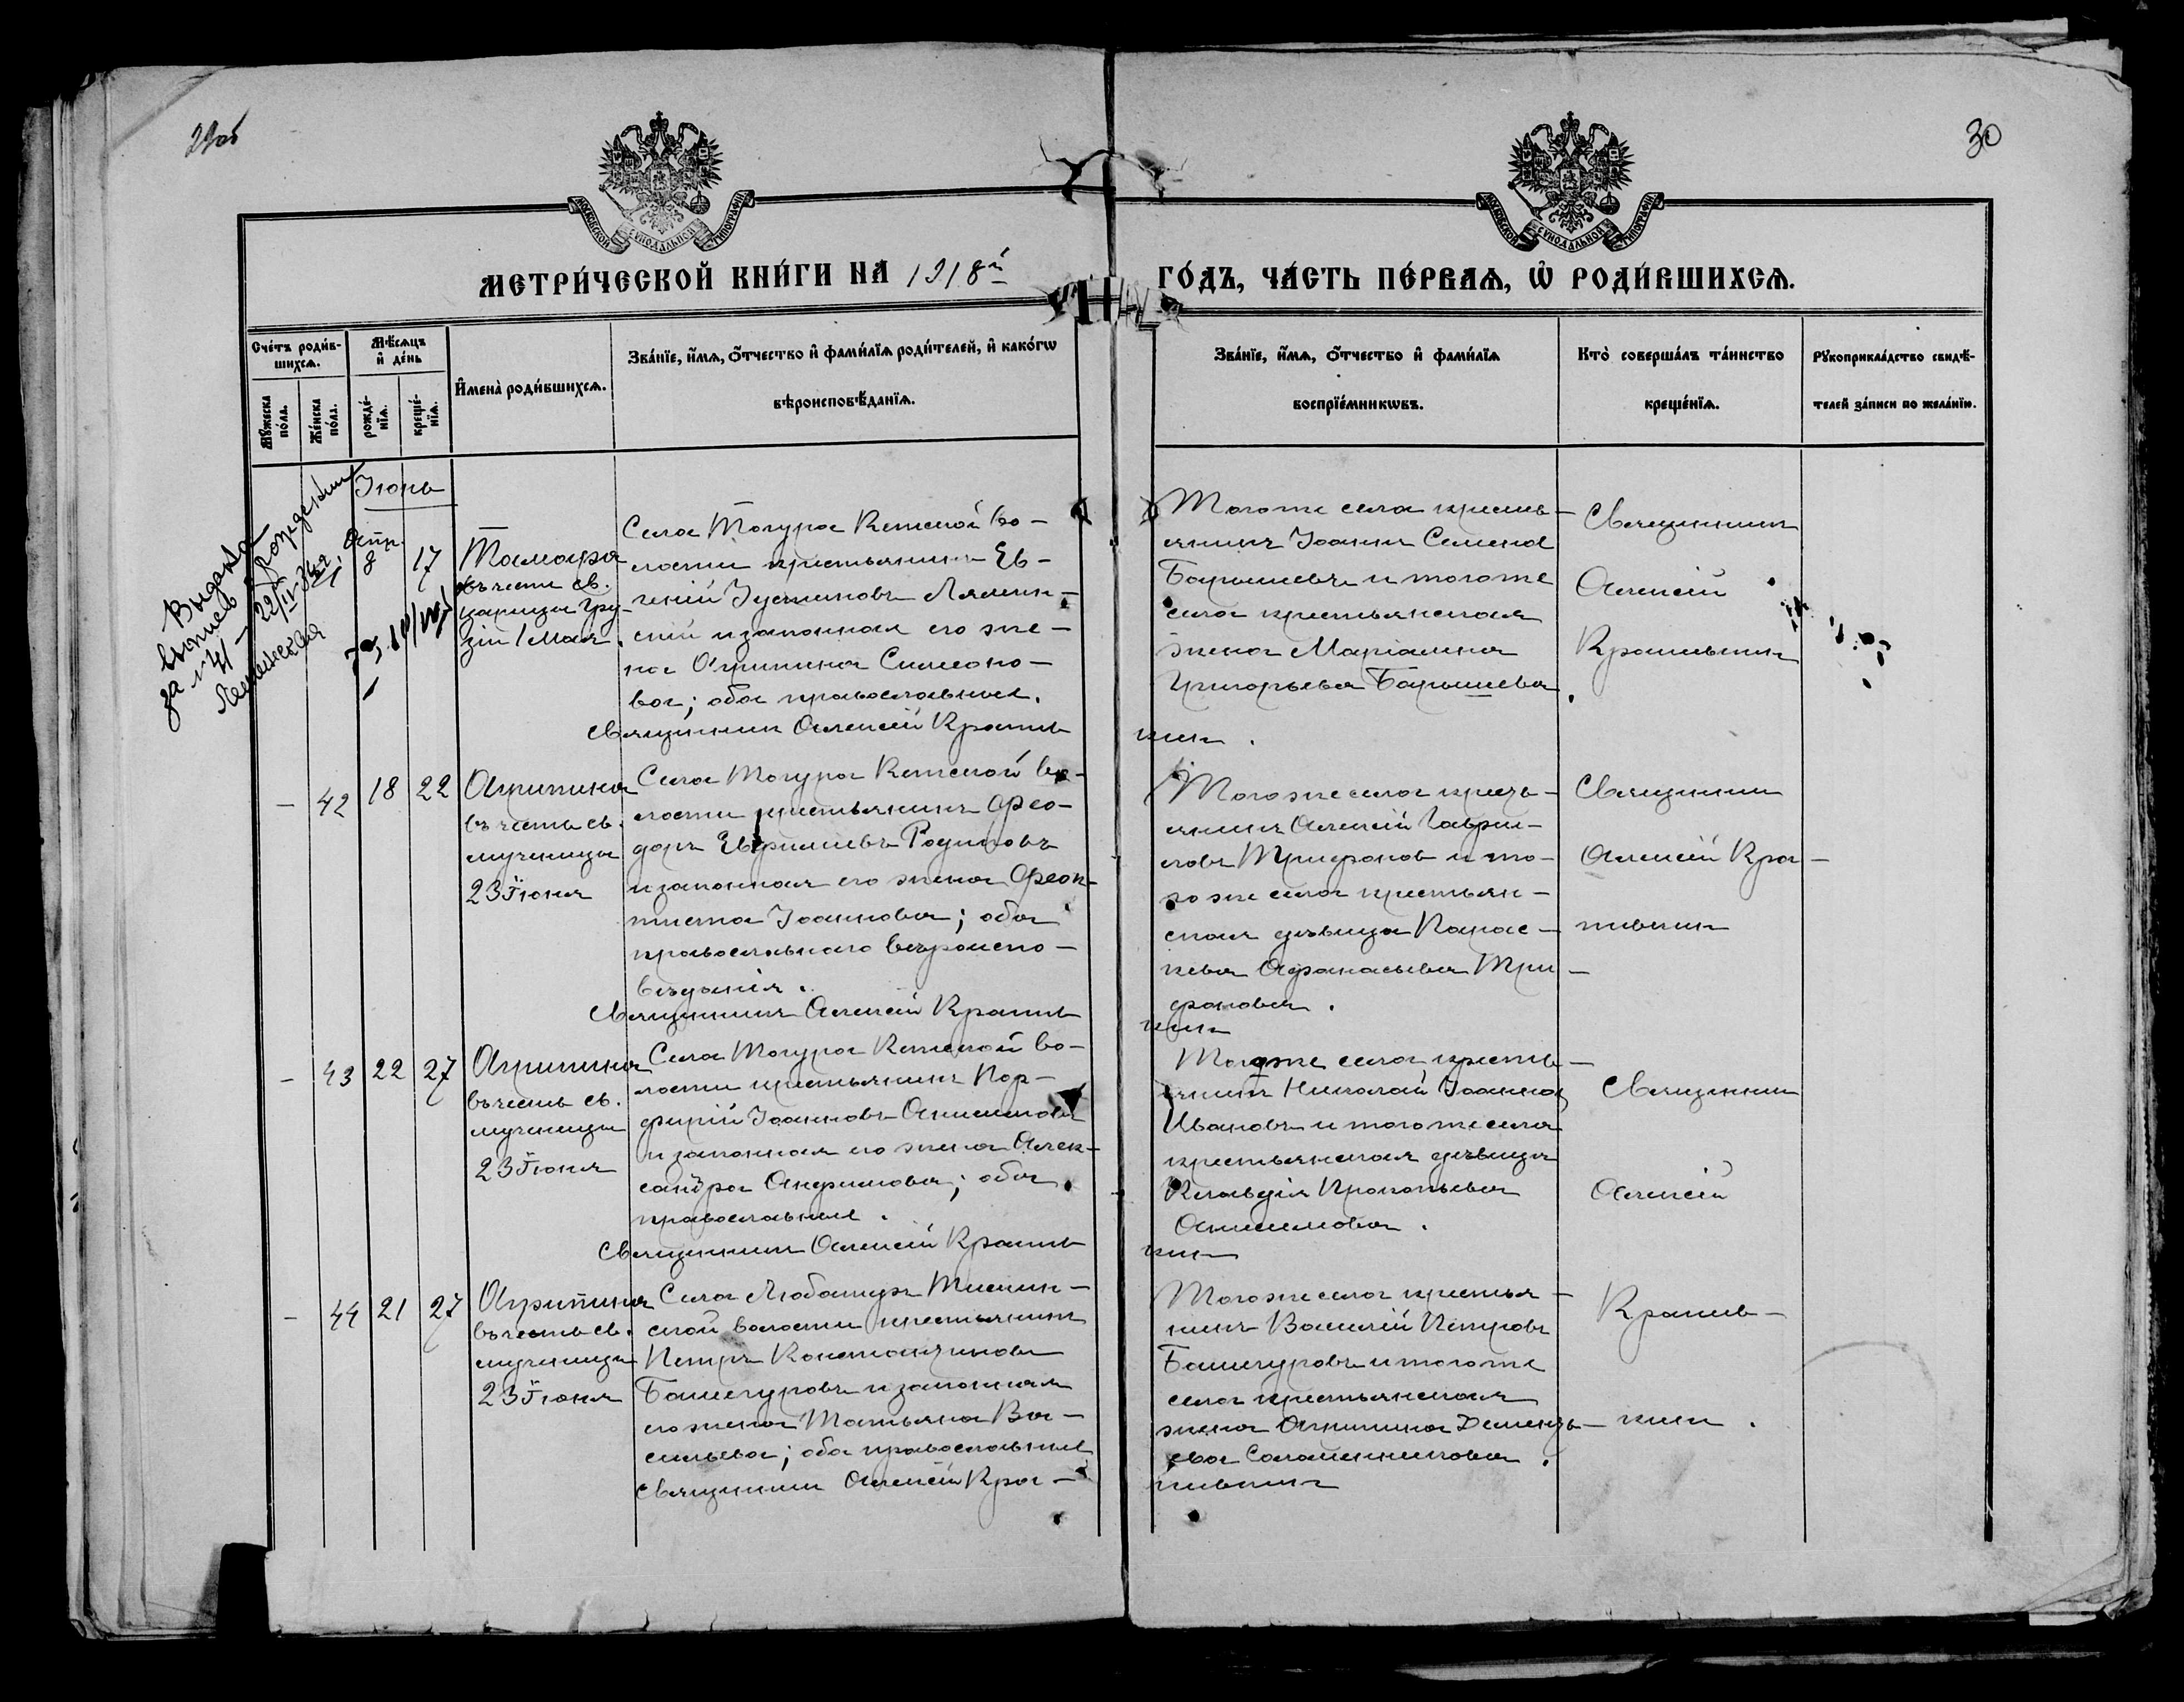 29об
30
МОСКОВСКОЙ СѴНОДАЛЬНОЙ ТИПОГРАФІИ
МОСКОВСКОЙ СѴНОДАЛЬНОЙ ТИПОГРАФІИ
МЕТРИ́ЧЕСКОЙ КНИ́ГИ НА 1918й
ГО́ДЪ, ЧА́СТЬ ПЕ́РВАѦ, Ѡ҆ РОДИ́ВШИХСѦ.
Сче́тъ роди́в-
шихсѧ.
Мꙋ́жеска
по́ла.
Же́нска
по́ла.
Мѣ́сѧцъ
и҆ де́нь
рожде́-
нїѧ.
креще́-
нїѧ.
И҆мена̀ роди́вшихсѧ.
Зва́нїе, и҆́мѧ, ѻ҆́тчество и҆ фами́лїѧ роди́телей, и҆ како́гѡ
вѣроисповѣ́данїѧ.
Зва́нїе, и҆́мѧ, ѻ҆́тчество и҆ фами́лїѧ
воспрїе́мникѡвъ.
Кто̀ соверша́лъ та́инство
креще́нїѧ.
Рꙋкоприкла́дство свидѣ́-
телей за́писи по жела́нїю.
Выдана
выпись о рождении
за № 41 – 22/II
Іюнь
Апр.
8
17
Тамара
въ честь св.
царицы Гру-
зіи 1 Мая.
Села Тогура Кетской во-
лости крестьянинъ Ев-
геній Іустиновъ Лямин-
скій и законная его же-
на Агрипина Симеоно-
ва; оба православные.
Священникъ Алексій Крапив
кинъ.
Того же села кресть-
янинъ Іоаннъ Семенов
Барышевъ и того же
села крестьянская
жена Маріамна
Григорьева Барышева.
Священникъ
Алексій
Крапивкинъ
– 42 18 22
Агрипина
въ честь св.
мученицы
23 Іюня
Села Тогура Кетской во-
лости крестьянинъ Ѳео-
доръ Евфимиевъ Родиковъ
и законная его жена Ѳеок-
тиста Іоаннова; оба
православнаго вероиспо-
веданія.
Священникъ Алексій Крапив
кинъ
Того же села кресть-
янинъ Алексій Гаври-
ловъ Трифонов и то-
го же села крестьян-
ская дѣвица Парас-
кева Афанасьева Три-
фонова.
Священник
Алексій Кра-
пивкин
– 43 22 27
Агрипина
въ честь св.
мученицы
23 Іюня
Села Тогура Кетской во-
лости крестьянинъ Пор-
фирій Іоанновъ Анисимовъ
и законная его жена Алек-
сандра Анфимова; оба
православные.
Священникъ Алексій Крапив
кинъ
Того же села кресть-
янинъ Николай Іоаннов
Ивановъ и того же села
крестьянская дѣвица
Клавдія Прокопьева
Анисимова.
Священник
Алексій
– 44 21 27
Агрипина
въ честь св.
мученицы
23 Іюня
Села
волости крестьянинъ
Петръ Константинов
Башегуровъ и законная
его жена Татьяна Ва-
сильева; оба православные
Священник Алексій Кра-
пивкинъ
Того же села крестья-
нинъ Василій Петровъ
Башегуровъ и того же
села крестьянская
жена Агрипина Дементь-
ева Соломенникова.
Крапив-
кин.